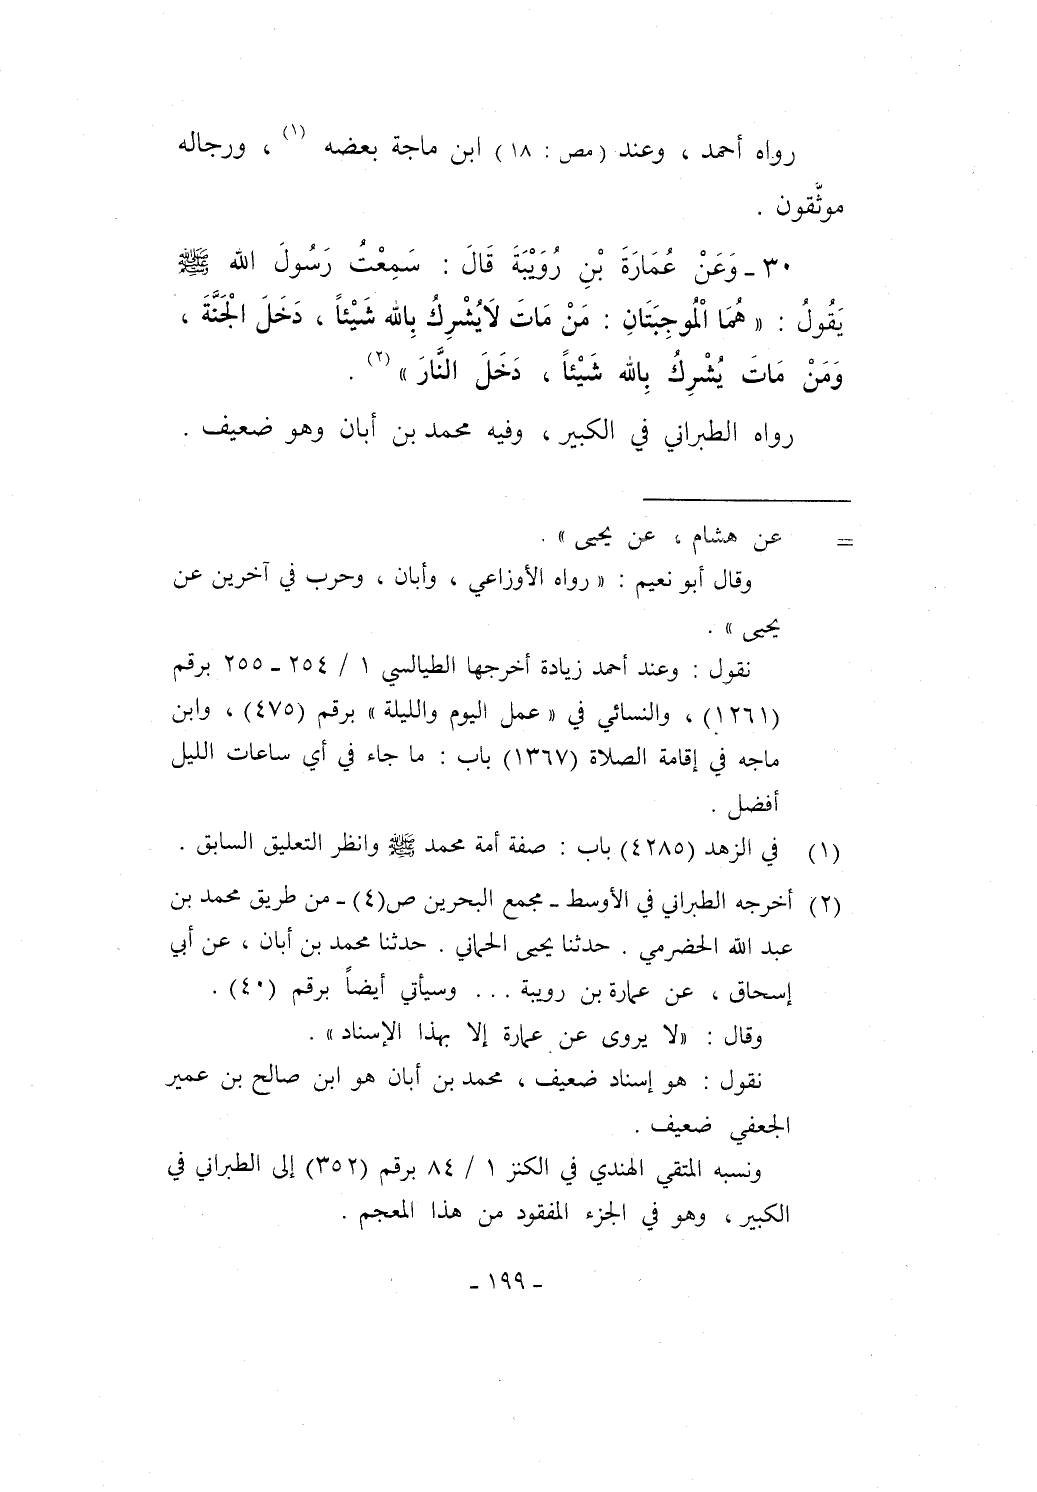 رواه أحمد ، وعند (مص : ١٨) ابن ماجة بعضه (١) ، ورجاله
موثَّقون .
٣٠ ـ وَعَنْ عُمَارَةَ بْنِ رُوَيْبَةَ قَالَ : سَمِعْتُ رَسُولَ الله ﷺ
يَقُولُ : « هُمَا الْمُوجِبَتَانِ : مَنْ مَاتَ لَايُشْرِكُ بِالله شَيْئاً ، دَخَلَ الْجَنَّةَ ،
وَمَنْ مَاتَ يُشْرِكُ بِالله شَيْئاً ، دَخَلَ النَّارَ » (٢) .
رواه الطبراني في الكبير ، وفيه محمد بن أبان وهو ضعيف .
= عن هشام ، عن يحيى » .
وقال أبو نعيم : « رواه الأوزاعي ، وأبان ، وحرب في آخرين عن
يحيى » .
نقول : وعند أحمد زيادة أخرجها الطيالسي ١ / ٢٥٤ ـ ٢٥٥ برقم
(١٢٦١) ، والنسائي في « عمل اليوم والليلة » برقم (٤٧٥) ، وابن
ماجه في إقامة الصلاة (١٣٦٧) باب : ما جاء في أي ساعات الليل
أفضل .
(١) في الزهد (٤٢٨٥) باب : صفة أمة محمد ﷺ وانظر التعليق السابق .
(٢) أخرجه الطبراني في الأوسط ـ مجمع البحرين ص(٤) ـ من طريق محمد بن
عبد الله الحضرمي . حدثنا يحيى الحماني . حدثنا محمد بن أبان ، عن أبي
إسحاق ، عن عمارة بن رويبة ... وسيأتي أيضاً برقم (٤٠) .
وقال : «لا يروى عن عمارة إلا بهذا الإسناد» .
نقول : هو إسناد ضعيف ، محمد بن أبان هو ابن صالح بن عمير
الجعفي ضعيف .
ونسبه المتقي الهندي في الكنز ١ / ٨٤ برقم (٣٥٢) إلى الطبراني في
الكبير ، وهو في الجزء المفقود من هذا المعجم .
ـ ١٩٩ ـ